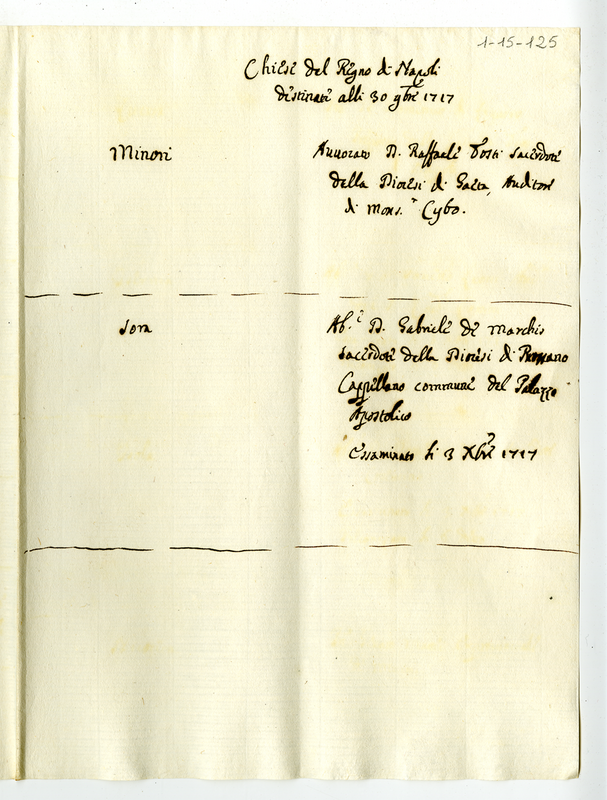 1-15-125
Chiese del Regno di Napoli
destinate alli 30 9bre 1717
Minori
Avvocato D. Raffaele Tosti Sacerdote
della Diocesi di Gaeta, Auditore
di Mons.r Cybo.
Sora
Ab.e D. Gabriele de Marchis
Sacerdote della Diocesi di
Cappellano commune del Palazzo
Apostolico
Essaminato li 3 Xbre 1717